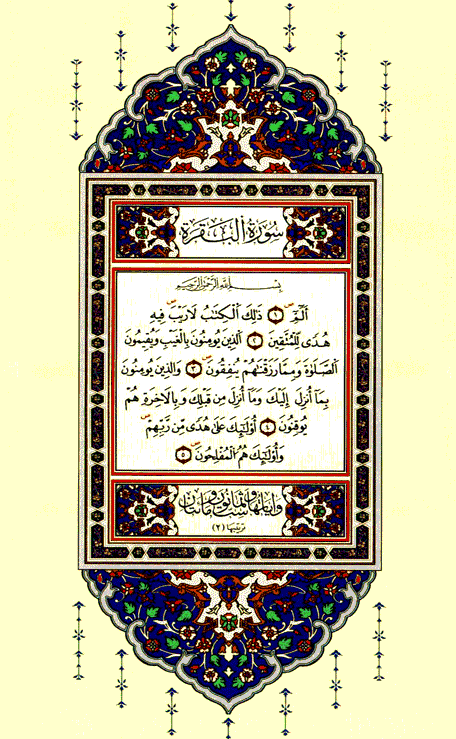 سُورَةُ الْبَقَرَةِ
بِسْمِ اللَّهِ الرَّحْمَٰنِ الرَّحِيمِ
الٓمٓ ۝١ ذَٰلِكَ الْكِتَٰبُ لَا رَيْبَ فِيهِ
هُدًى لِلْمُتَّقِينَ ۝٢ الَّذِينَ يُؤْمِنُونَ بِالْغَيْبِ وَيُقِيمُونَ
الصَّلَوٰةَ وَمِمَّا رَزَقْنَٰهُمْ يُنْفِقُونَ ۝٣ وَالَّذِينَ يُؤْمِنُونَ
بِمَا أُنْزِلَ إِلَيْكَ وَمَا أُنْزِلَ مِنْ قَبْلِكَ وَبِالْآخِرَةِ هُمْ
يُوقِنُونَ ۝٤ أُولَٰئِكَ عَلَىٰ هُدًى مِّن رَّبِّهِمْ
وَأُولَٰئِكَ هُمُ الْمُفْلِحُونَ ۝٥
وآياتها مائتان وست وثمانون
ترتيبها (٢)